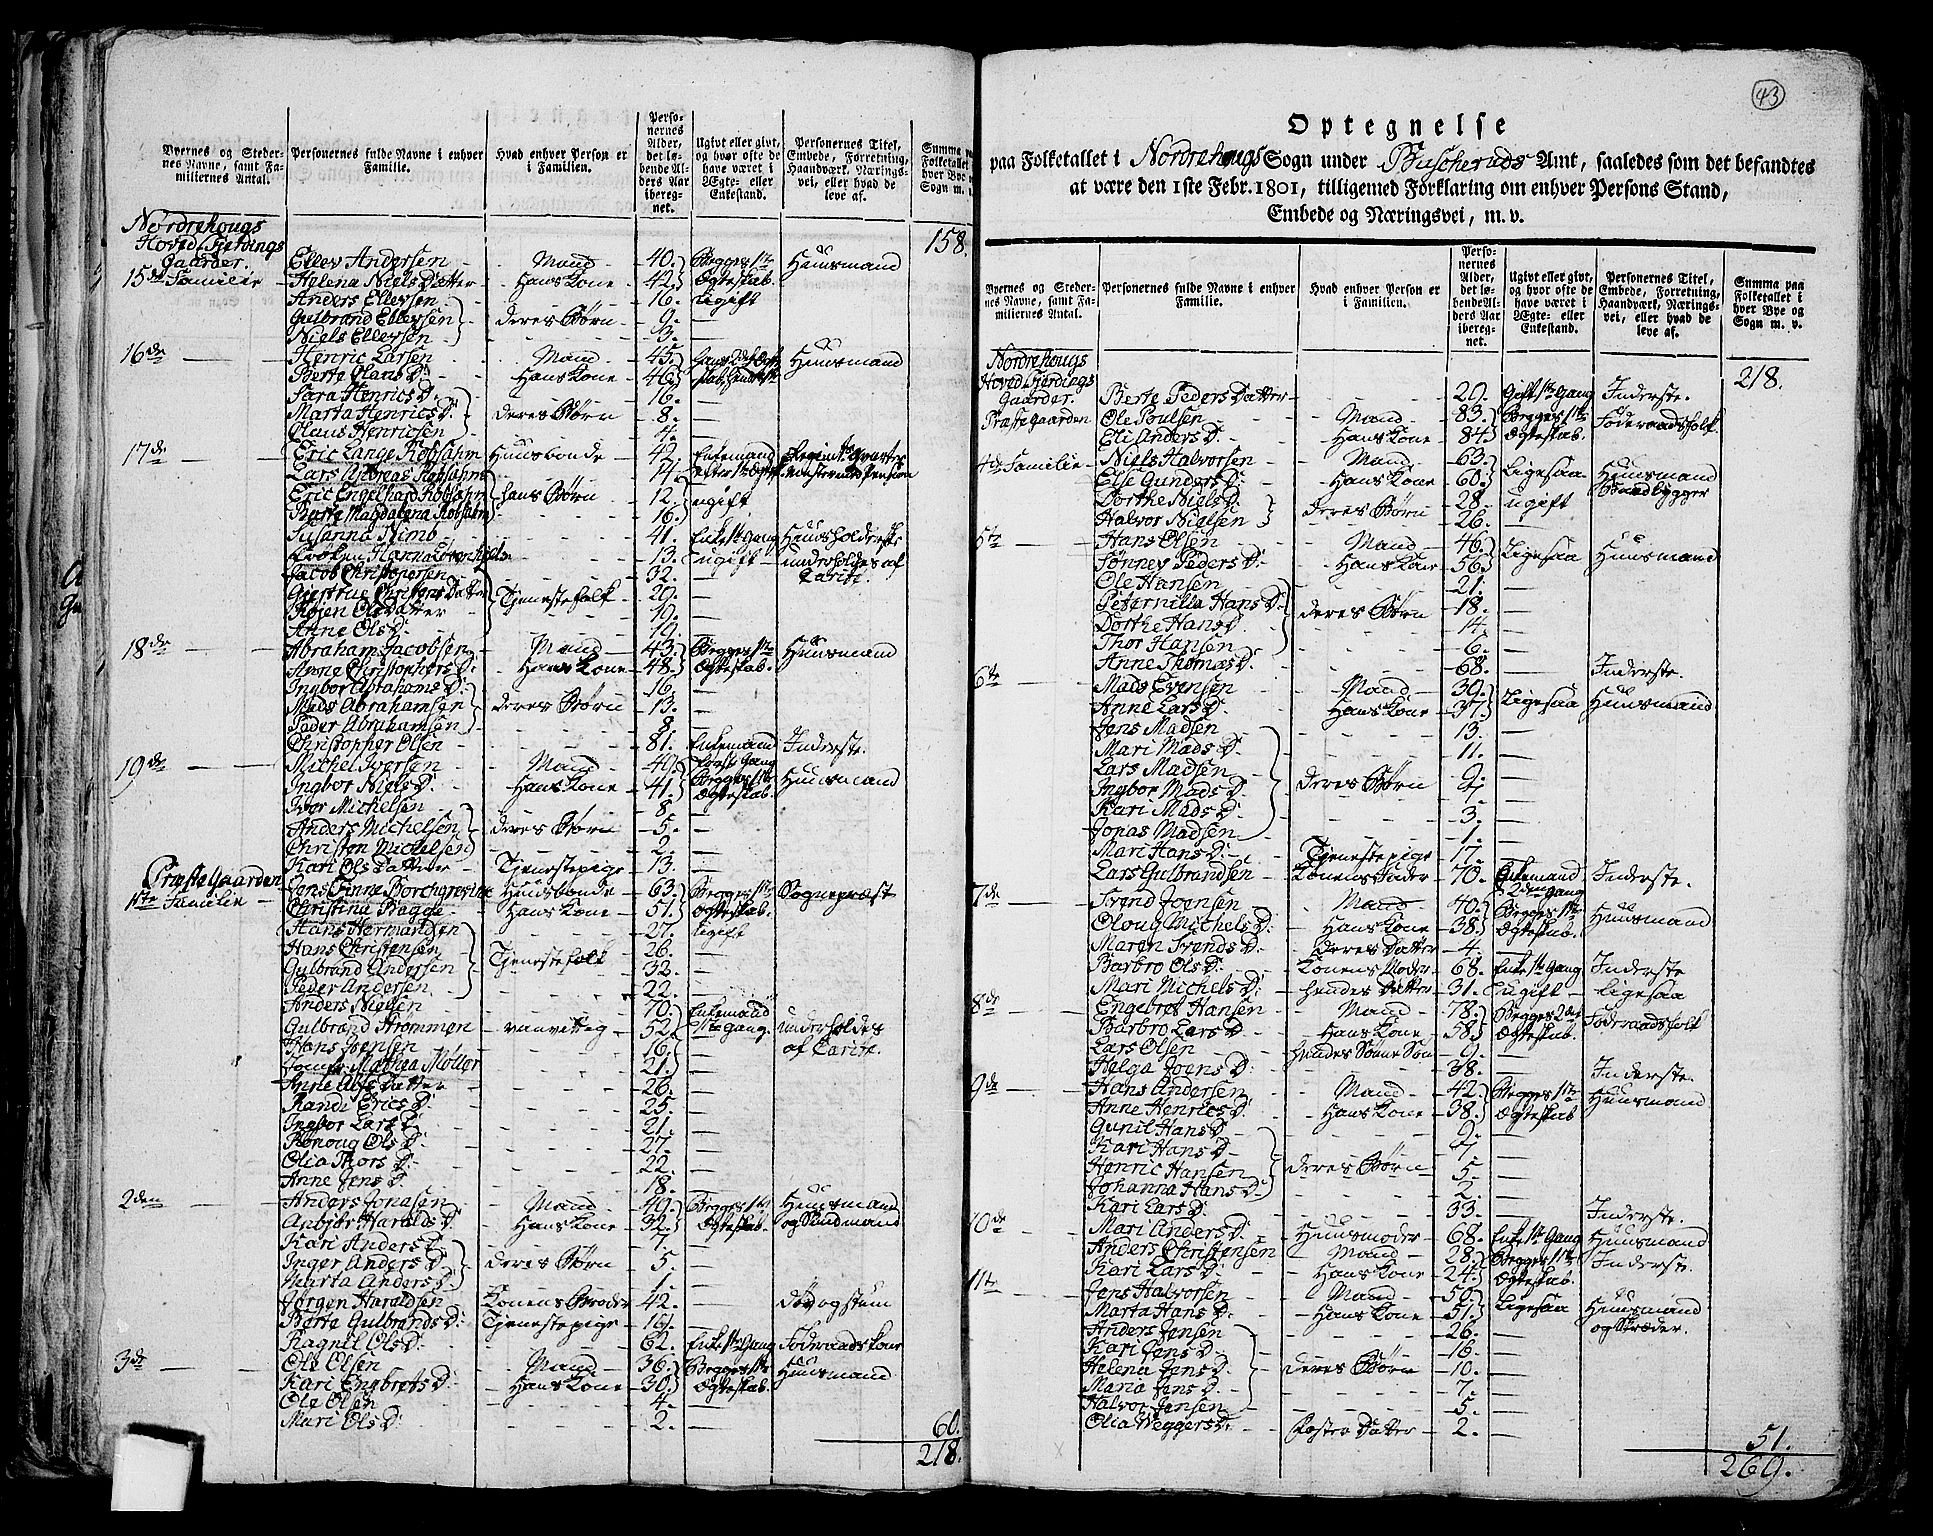 Byernes og Stedernes Navne, samt Familiernes Antal.
Personernes fulde Navne i enhver Familie.
Hvad enhver Person er i Familien.
Personernes Alder, det løbende Alders Aar iberegnet.
Ugivt eller givt, og hvor ofte de have været i Ægte- eller Enkestand.
Personernes Titel, Embede, Forretning, Haandværk, Næringsvei, eller hvad de leve af.
Summa paa Folketallet i hver Bye og Sogn m. v.
Nordrehougs
Hoved Fjerdings
Gaarder. 158.
Ellev Andersen - Mand - 40. Begges 1ste Huusmand
15de Familie Helena Niels Datter - Hans Kone - 42. Ægteskab.
Anders Ellevsen - 16. Ugift
Gulbrand Ellevsen deres Børn - 9. —
Niels Ellevsen - 3. —
16de Henric Larsen - Mand - 45. Huusmand
Berte Olans D: - Hans Kone - 46.
Sara Henrics D: - 16. —
Marta Henrics D: deres Børn - 8. —
Claus Henricsen - 4. —
17de Eric Lange Robsahm Huusbonde - 42. Enkemand
Lars Andreas Robsahm - 14.
Eric Engelhard Robsahm hans Børn - 12. ugift
Berte Magdalena Robsahm - 16. —
Susanna Nimb - 41. Enke 1ste Gang Huusholderske
13. ugift - underholdes af
Jacob Christophersen - 32. —
Giertrue Christens Datter Tjenestefolk - 20. —
Kojen Ols Datter - 19. —
Anne Ols D: - 19. —
18de Abraham Jacobsen - Mand - 43. Begges 1ste Huusmand
Anne Christophers D: Hans Kone - 48. Ægteskab.
Ingbor Abrahams D: - 16. —
Mads Abrahamsen deres Børn - 13. —
Peder Abrahamsen - 8. —
Christopher Olsen - 81. Enkemand Inderste.
19de Michel Iversen - Mand - 49. Begges 1ste Huusmand
Ingbor Niels D: - Hans Kone - 41. Ægteskab.
Iver Michelsen - 8. —
Anders Michelsen deres Børn - 5. —
Christen Michelsen - 2. —
Kari Ols Datter - Tjenestepige - 13. —
Præste Gaarden Jens Finne Borchgrevink Huusbonde - 63. Begges 1ste Sognepræst
1ste Familie - Christina Bagge - Hans Kone - 51. Ægteskab.
Hans Hermandsen - 27. Ugift
Hans Christensen Tjenestefolk - 26. —
Gulbrand Andersen - 32. —
Peder Andersen - 22. —
Anders Nielsen - 70. Enkemand
Gulbrand Strømmen - vanvittig - 52. 1ste Gang. underholdes
Hans Jensen - 16. — af
Jomfr Mathea Möller - 21. —
Anne Ols Datter - 26. —
Randi Erics D: - 25. —
Ingbor Lars D: - 21. —
Rønoug Ols D: - 27. —
Olia Thors D: - 22. —
Anne Jens D: - 18. —
2den Anders Jonasen - Mand - 49. Begges 1ste Huusmand
Anbjør Haralds D: - Hans Kone - 32. Ægteskab.
Kari Anders D: - 7. —
Inger Anders D: deres Børn - 5. —
Marta Anders D: - 1. —
Jørgen Haraldsen - Konens Broder 42. — døv og stum
Berte Gulbrands D: Tjenestepige - 19. —
Ragnil Ols D: - 62. Enke 1ste Gang Føderaadskone
3de Ole Olsen - Mand - 36. Begges 1ste Huusmand
Kari Engbrets D: - Hans Kone - 30. Ægteskab.
Ole Olsen - 4. —
Mari Ols D: - 2. —
60.
218.
43
Optegnelse
paa Folketallet i Nordrehougs Sogn under Buscheruds Amt, saaledes som det befandtes
at være den 1ste Febr. 1801, tilligemed Forklaring om enhver Persons Stand,
Embede og Næringsvei, m. v.
Byernes og Stedernes Navne, samt Familiernes Antal.
Personernes fulde Navne i enhver Familie.
Hvad enhver Person er i Familien.
Personernes Alder, det løbende Alders Aar iberegnet.
Ugivt eller givt, og hvor ofte de have været i Ægte- eller Enkestand.
Personernes Titel, Embede, Forretning, Haandværk, Næringsvei, eller hvad de leve af.
Summa paa Folketallet i hver Bye og Sogn m. v.
Nordrehougs
Hoved Fjerdings 218.
Gaarder. Berte Peders Datter - 29. Gift 1ste Gang Inderste.
Præstegaarden Ole Poulsen - Mand - 83. Begges 1ste Föderaadsfolk
Eli Anders D: - Hans Kone - 84. Ægteskab.
4de Familie - Niels Halvorsen - Mand - 63. Ligesaa Huusmand
Else Gunders D: - Hans Kone - 60.
Dorthe Niels D: deres Børn - 28. ugift
Halvor Nielsen - 26. —
5te Hans Olsen - Mand - 46. Ligesaa Huusmand
Sønnev Peders D: - Hans Kone - 56.
Ole Hansen - 21. —
Peternilla Hans D: deres Børn - 18. —
Dorthe Hans D: - 14. —
Thor Hansen - 6. —
Anne Thomas D: - 68. — Inderste.
6te Mads Evensen - Mand - 39. Ligesaa Huusmand
Anne Lars D: - Hans Kone - 37.
Jens Madsen - 13. —
Mari Mads D: - 11. —
Lars Madsen - deres Børn 9. —
Ingbor Mads D: - 7. —
Kari Mads D: - 3. —
Jonas Madsen - 1. —
Mari Hans D: - Tjenestepige - 17. —
Lars Gulbrandsen - Konens Fader - 70. Enkemand Inderste.
2den Gang
7de Svend Joensen - Mand - 40. Begges 1ste Huusmand
Oloug Michels D: - Hans Kone - 38. Ægteskab.
Maren Svends D: - deres Datter - 4. —
Barbro Ols D: - Konens Moder - 68. Enke 1ste Gang Inderste
Mari Michels D: - hendes Datter - 31. ugift - Ligesaa
8de Engebret Hansen - Mand - 78. Begges 2den Föderaadsfolk
Barbro Lars D: - Hans Kone - 58. Ægteskab.
Lars Olsen - hendes Sønne Søn - 9. —
Helga Joens D: - 38. — Inderste.
9de Hans Andersen - Mand - 42. Begges 1ste Huusmand
Anne Henrics D: - Hans Kone - 38. Ægteskab
Gunil Hans D: - 9. —
Kari Hans D: - 7. —
Henric Hansen deres Børn - 5. —
Johanna Hans D: - 2. —
Kari Lars D: - 33. — Inderste.
10de Mari Anders D: - Huusmoder - 68. Enke 1ste Gang Huusmand
Anders Christensen - Mand - 28. Begges 1ste Inderste.
Kari Lars D: - Hans Kone - 24. Ægteskab.
11te Jens Halvorsen - Mand - 50. Ligesaa Huusmand
Marta Hans D: - Hans Kone - 51. og Skræder.
Anders Jensen - 26. —
Kari Jens D: - 16. —
Helena Jens D: deres Børn - 10. —
Maria Jens D: - 7. —
Halvor Jensen - 5. —
Olia Weggers D: - Foster Datter - 2. —
51.
269.